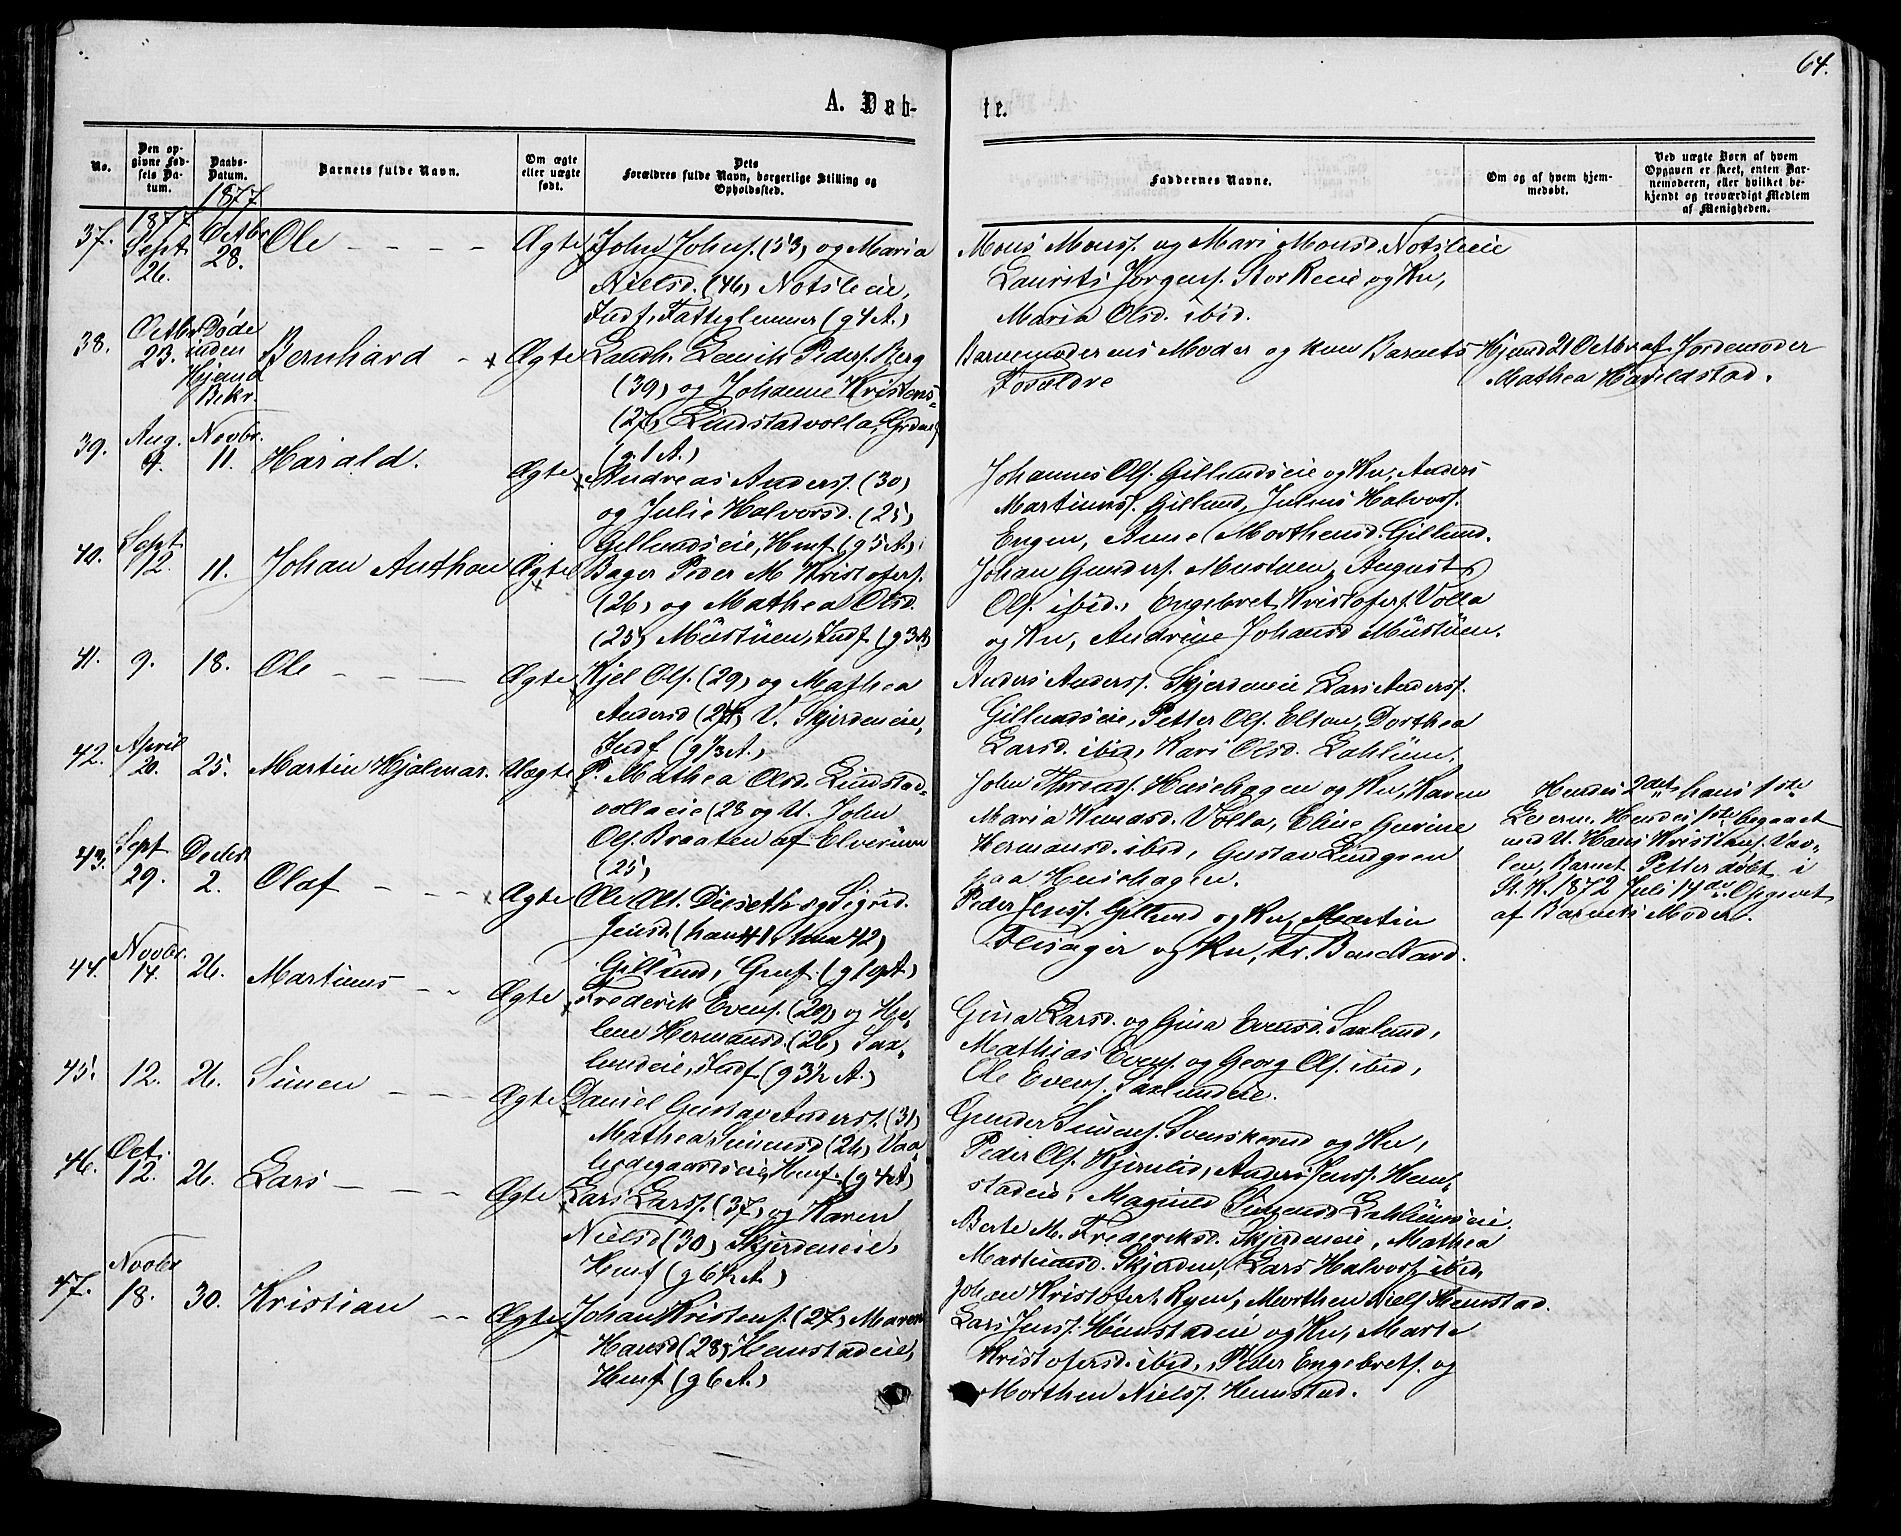 64.
A. Døb-
te.
No.
Den op-
givne Fød-
sels Da-
tum.
Daabs-
Datum.
Barnets fulde Navn.
Om ægte
eller uægte
født.
Dets
Forældres fulde Navn, borgerlige Stilling og
Opholdssted.
Faddernes Navne.
Om og af hvem hjem-
medøbt.
Ved uægte Børn af hvem
Opgaven er skeet, enten Bar-
nemoderen, eller hvilket be-
kjendt og troværdigt Medlem
af Menigheden.
37.
1877
Sept
26.
1877
Octbr
28.
Ole
Ægte
John Johns. (53) og Maria
Nielsd. (46) Notsleie,
Indf. Fattiglemmer (g 4 A.)
Mons Monss. og Mari Monsd. Notsleie
Laurits Jørgens. Storkeie og Kn,
Maria Olsd. ibid.
38.
Octbr
23.
Døde
inden
Hjemd
Bekr.
Bernhard
Ægte
Landh. Lauik Peders. Berg
(39) og Johanne Kristens-
(27) Lindstadvolla, Grdm
(g. 1 A.)
Barnemoderens Moder og kun Barnets
Forældre
Hjemd 21 Octbr af Jordemoder
Mathea Harildstad.
39.
Aug.
9.
Novbr.
11.
Harald.
Ægte
Andreas Anders. (30)
og Julie Halvorsd. (25)
Gillundseie, Hmf. (g 5 A.)
Johannes Ols. Gillundseie og Kn, Anders
Martinus. Gillund, Julius Halvors.
Engen, Anne Morthensd. Gillund.
40.
Sept.
12.
11.
Johan Anthon
Ægte
Bager Peder M. Kristofers.
(26) og Mathea Olsd.
(25) Müstüen, Indf. (g. 3 A)
Johan Gunders. Mustuen, August
Ols. ibid., Engebret Kristofers. Volla
og Kn, Andrine Johansd Müstüen.
41.
9.
18.
Ole
Ægte
Kjel Ols. (29) og Mathea
Andersd (24) V. Skjerdeneie,
Indf (g 1/3 A.)
Anders Anderss. Skjerdeneie Lars Anderss.
Gillundseie, Petter Ols. Elton, Dorthea
Larsd. ibid, Kari Olsd. Lahlüm.
42.
April
20.
25.
Martin Hjalmar.
Uægte
P. Mathea Olsd. Lindstad-
vollaeie (28 og U. John
Ols. Braaten af Elverüm
(25)
John Throns. Heiehagen og Kn, Karen
Maria Knudsd. Volla, Eline Gurine
Hermansd. ibid, Gustav Lindgren
paa Heiehagen.
Hendes 2det, hans 1ste
Leierm. Hendes 1ste begaaet
med U. Hans Kristians. Vav-
len, Barnet Petter døbt i
St. K. 1872 Juli 14de Opgivet
af Barnets Moder.
43.
Sept
29.
Decbr
2.
Olaf
Ægte
Ole Ols. Diesethsog Sigrid.
Jensd. (han 41, hun 42)
Gillund, Gmf. (g 19 A)
Peder Jenss. Gillund og Kn, Martin
Fleisager og Kn,
44.
Novbr.
14.
26.
Martinus
Ægte
Frederik Evens. (29) og He-
lene Hermansd. (26) Sax-
lundeie, Indf (g 3½ A.)
Gina Larsd. og Gina Evensd. Saxlund,
Mathias Evens. og Georg Ols. ibid,
Ole Evens. Saxlundeie.
45.
12.
26.
Simen
Ægte
Daniel Gustav Anders. (31)
Mathea Simensd (26) Vaa-
legdegaardseie, Hmf. (g 4 A)
Gunder Simens. Svenskerud og Kn,
Peder Ols. Kjernlid, Anders Jenss. Hem-
stadeie, Magnild Simensd Lahlümseie.
46.
Oct.
12.
26.
Lars
Ægte
Lars Larss. (37) og Karen
Nielsd (30) Skjerdeneie,
Hmf (g 6½ A.)
Berte M. Frederiksd. Skjerdeneie, Mathea
Martinsd. Skjerden, Lars Halvors. ibid,
Johan Kristofers. Ryen, Morthen Niels. Hemstad.
47.
Novbr
18.
30.
Kristian
Ægte
Johan Kristens. (27) Maren
Hansd (28) Hemstadeie,
Hmf (g 6 A.)
Lars Jenss. Hemstadeie og Kn, Marte
Kristofersd. ibid, Peder Engebrets. og
Morthen Nielss. Hemstad.